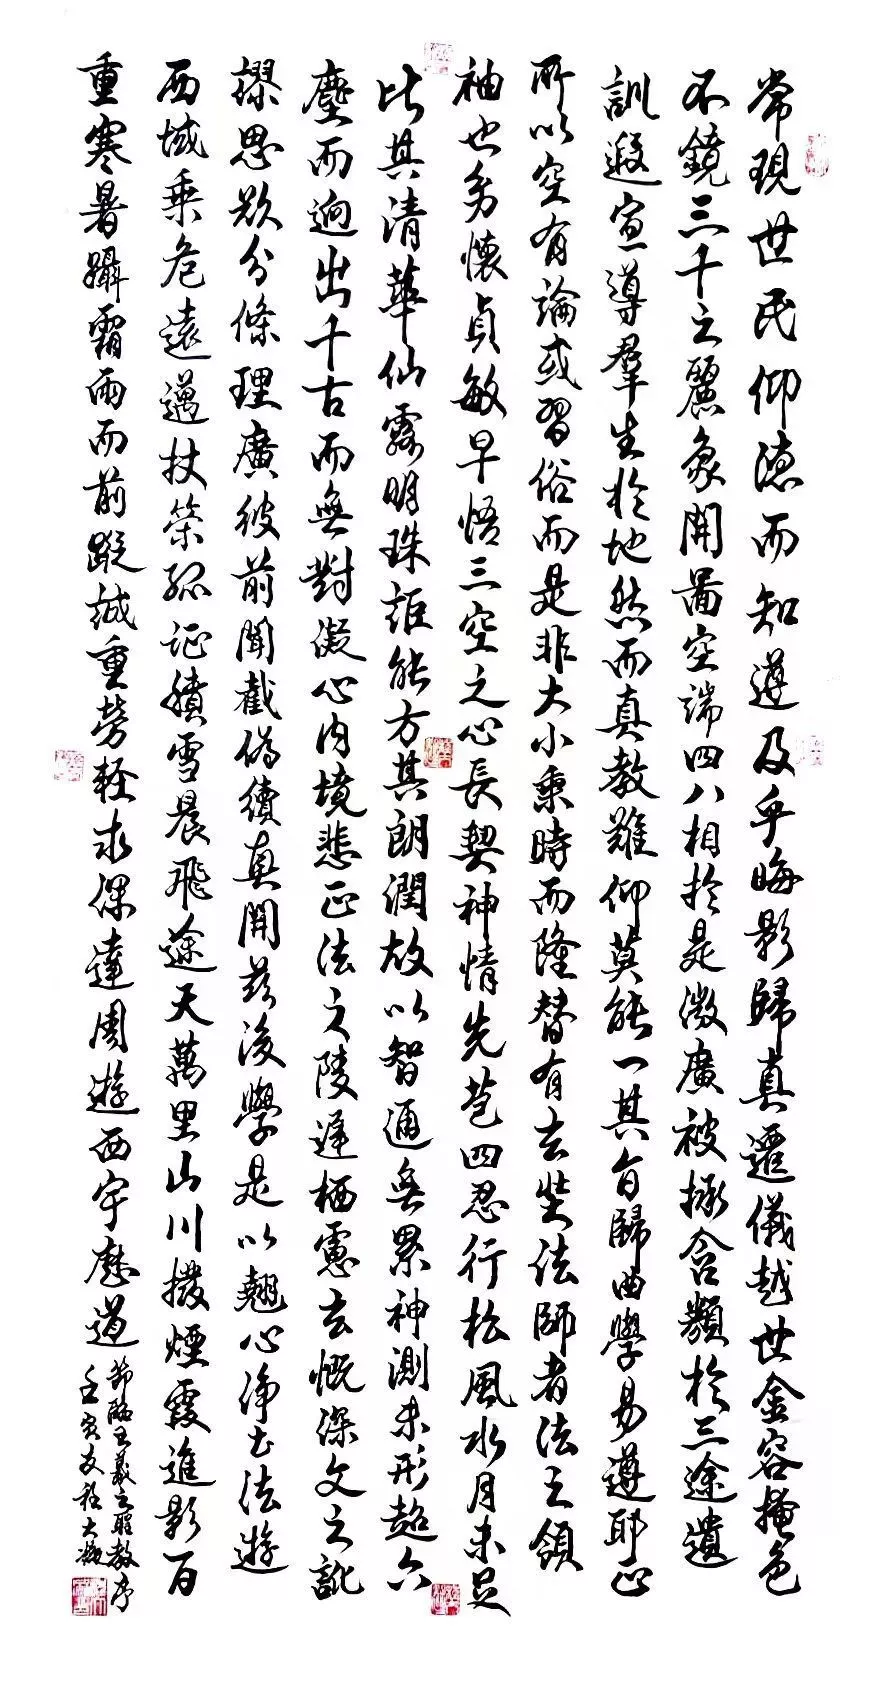 常現世民仰德而知遵及乎晦影歸真遷儀越世金容掩色
不鏡三千之麗象開圖空端四八相於是微廣被拯含類於三途遺
訓遐宣導羣生於地然而真教難仰莫能一其旨歸曲學易遵耶正
所以空有論或習俗而是非大小乘時而隆替有玄奘法師者法之領
袖也幼懷貞敏早悟三空之心長契神情先苞四忍行松風水月未足
比其清華仙露明珠詎能方其朗潤故以智通無累神測未形超六
塵而迥出千古而無對凝心內境悲正法之陵遲栖慮玄慨深文之訛
謬思欲分條理廣彼前聞截偽續真開茲後學是以翹心淨土法遊
西域乘危遠邁杖策孤征積雪晨飛途天萬里山川撥煙霞進影百
重寒暑躡霜雨而前蹤誠重勞輕求深達周遊西宇歷道
節臨王羲之聖教序
壬寅友程大